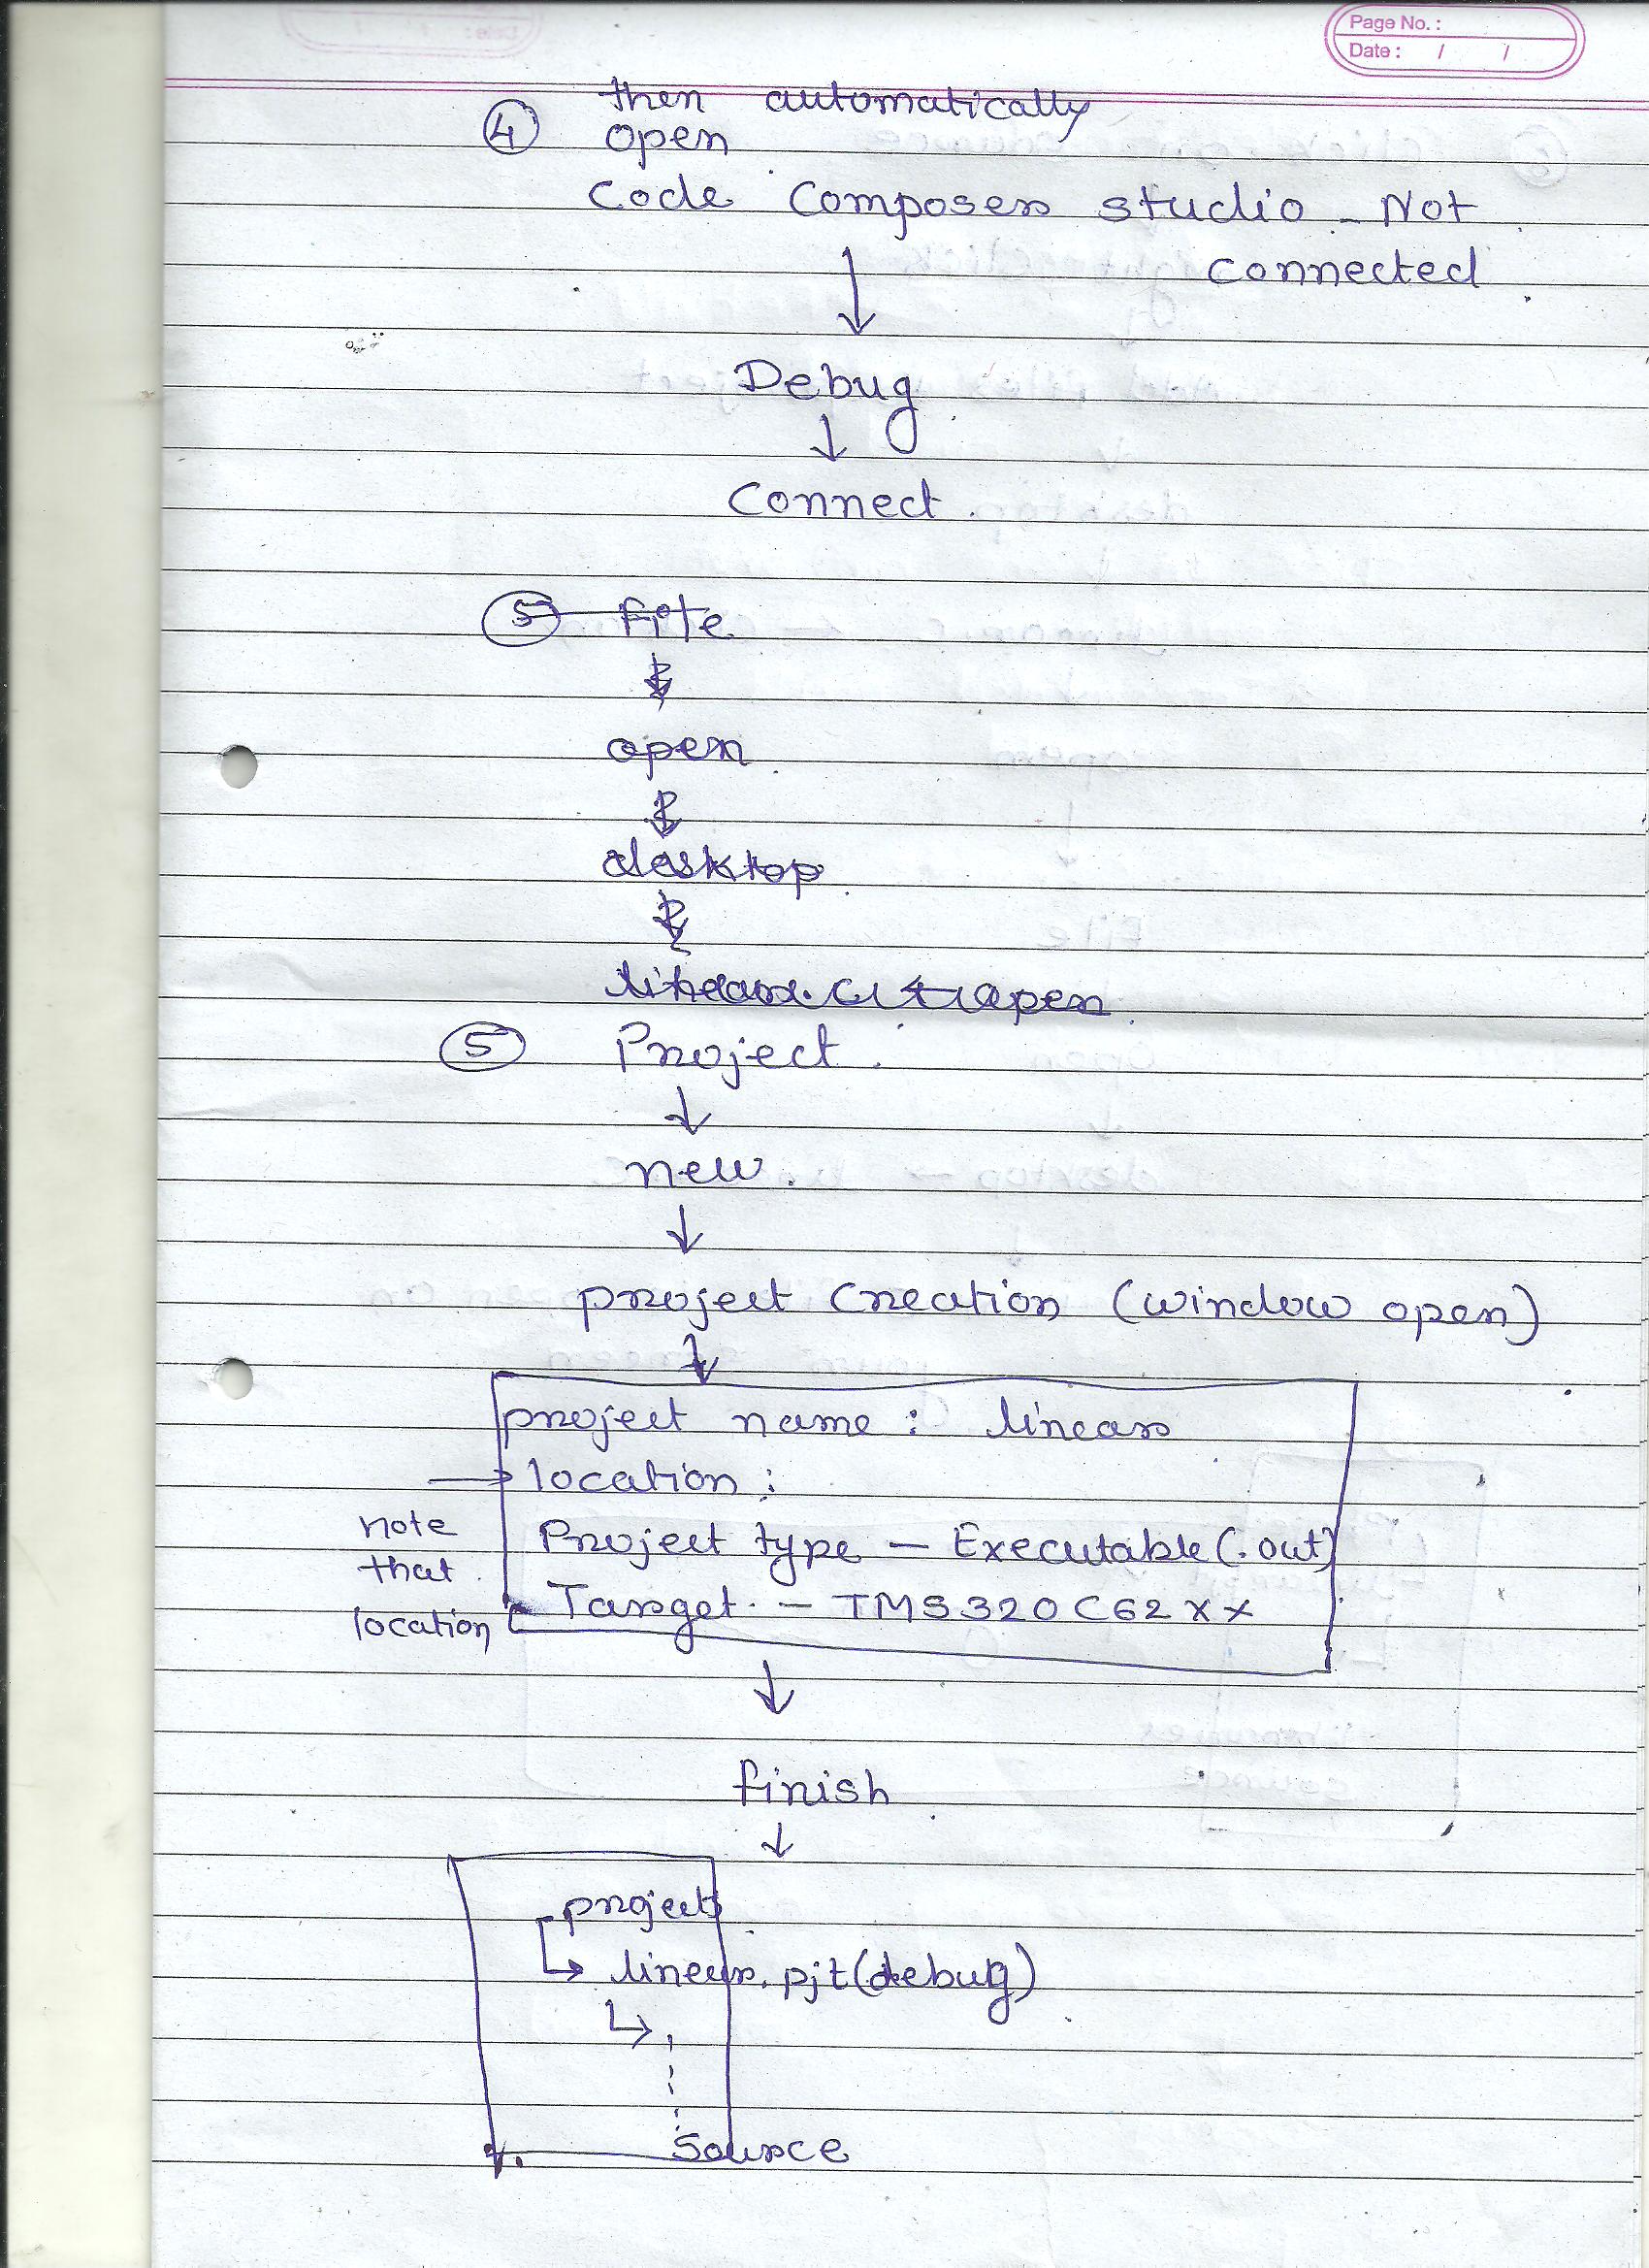 Page No. :
Date : / /
then automatically
④ open
Code Composer studio - Not
connected
↓
Debug
↓
Connect.
⑤ File
↓
open
↓
desktop
↓
linear.c ← open
⑤ Project.
↓
new.
↓
project creation (window open)
↓
project name : linear
→ location :
note
that
location
Project type - Executable (.out)
Target. - TMS320C62XX
↓
finish
↓
project
↳ linear.pjt(debug)
↳
source